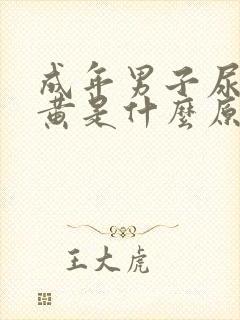 成年男子尿
黄是什麼原
王大虎